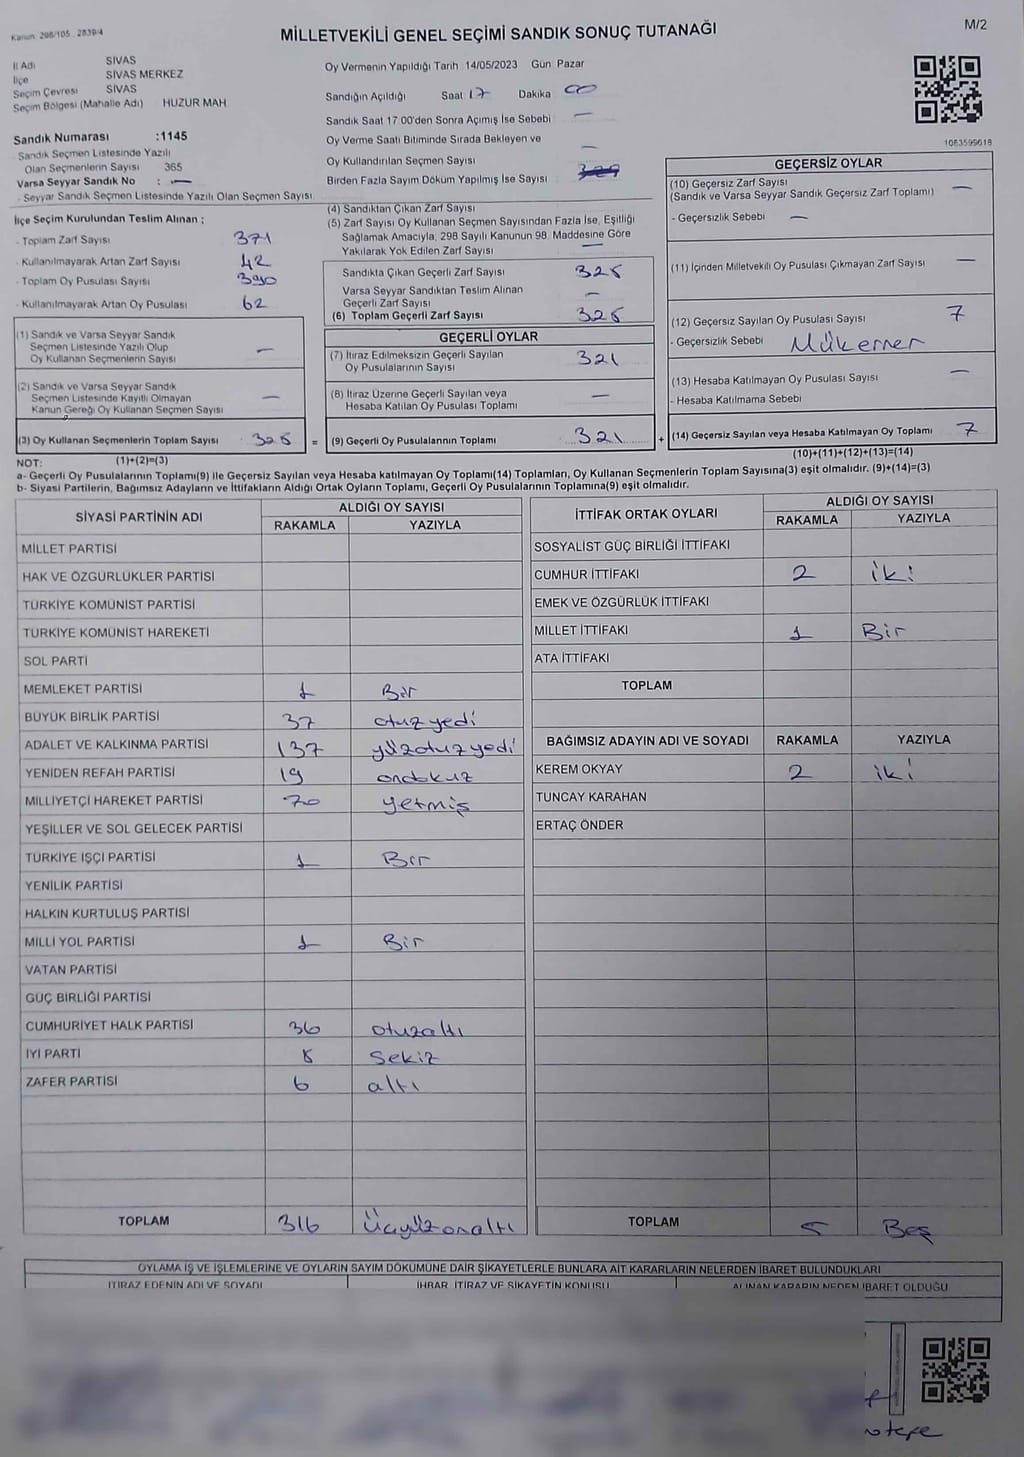 Kanun: 298/105 2839/4
MİLLETVEKİLİ GENEL SEÇİMİ SANDIK SONUÇ TUTANAĞI
M/2
İl Adı SİVAS
İlçe SİVAS MERKEZ
Seçim Çevresi SİVAS
Seçim Bölgesi (Mahalle Adı) HUZUR MAH
Sandık Numarası :1145
Sandık Seçmen Listesinde Yazılı
Olan Seçmenlerin Sayısı 365
Varsa Seyyar Sandık No : —
Seyyar Sandık Seçmen Listesinde Yazılı Olan Seçmen Sayısı
İlçe Seçim Kurulundan Teslim Alınan ;
- Toplam Zarf Sayısı 371
- Kullanılmayarak Artan Zarf Sayısı 42
- Toplam Oy Pusulası Sayısı 390
- Kullanılmayarak Artan Oy Pusulası 62
(1) Sandık ve Varsa Seyyar Sandık
Seçmen Listesinde Yazılı Olup
Oy Kullanan Seçmenlerin Sayısı —
(2) Sandık ve Varsa Seyyar Sandık
Seçmen Listesinde Kayıtlı Olmayan
Kanun Gereği Oy Kullanan Seçmen Sayısı —
(3) Oy Kullanan Seçmenlerin Toplam Sayısı 328 =
Oy Vermenin Yapıldığı Tarih 14/05/2023 Gün: Pazar
Sandığın Açıldığı Saat 17 Dakika 00
Sandık Saat 17:00'den Sonra Açımış İse Sebebi —
Oy Verme Saati Bitiminde Sırada Bekleyen ve
Oy Kullandırılan Seçmen Sayısı —
Birden Fazla Sayım Döküm Yapılmış İse Sayısı
(4) Sandıktan Çıkan Zarf Sayısı
(5) Zarf Sayısı Oy Kullanan Seçmen Sayısından Fazla İse, Eşitliği
Sağlamak Amacıyla, 298 Sayılı Kanunun 98. Maddesine Göre
Yakılarak Yok Edilen Zarf Sayısı —
Sandıkta Çıkan Geçerli Zarf Sayısı 328
Varsa Seyyar Sandıktan Teslim Alınan
Geçerli Zarf Sayısı —
(6) Toplam Geçerli Zarf Sayısı 328
GEÇERLİ OYLAR
(7) İtiraz Edilmeksizin Geçerli Sayılan
Oy Pusulalarının Sayısı 321
(8) İtiraz Üzerine Geçerli Sayılan veya
Hesaba Katılan Oy Pusulası Toplamı —
(9) Geçerli Oy Pusulalarının Toplamı 321 +
1083599618
GEÇERSİZ OYLAR
(10) Geçersiz Zarf Sayısı
(Sandık ve Varsa Seyyar Sandık Geçersiz Zarf Toplamı) —
- Geçersizlik Sebebi —
(11) İçinden Milletvekili Oy Pusulası Çıkmayan Zarf Sayısı —
(12) Geçersiz Sayılan Oy Pusulası Sayısı 7
- Geçersizlik Sebebi Mükerrer
(13) Hesaba Katılmayan Oy Pusulası Sayısı —
- Hesaba Katılmama Sebebi
(14) Geçersiz Sayılan veya Hesaba Katılmayan Oy Toplamı 7
NOT: (1)+(2)=(3)
(10)+(11)+(12)+(13)=(14)
a- Geçerli Oy Pusulalarının Toplamı(9) ile Geçersiz Sayılan veya Hesaba katılmayan Oy Toplamı(14) Toplamları, Oy Kullanan Seçmenlerin Toplam Sayısına(3) eşit olmalıdır. (9)+(14)=(3)
b- Siyasi Partilerin, Bağımsız Adayların ve İttifakların Aldığı Ortak Oyların Toplamı, Geçerli Oy Pusulalarının Toplamına(9) eşit olmalıdır.
SİYASİ PARTİNİN ADI ALDIĞI OY SAYISI
RAKAMLA YAZIYLA
MİLLET PARTİSİ
HAK VE ÖZGÜRLÜKLER PARTİSİ
TÜRKİYE KOMÜNİST PARTİSİ
TÜRKİYE KOMÜNİST HAREKETİ
SOL PARTİ
MEMLEKET PARTİSİ 1 Bir
BÜYÜK BİRLİK PARTİSİ 37 otuzyedi
ADALET VE KALKINMA PARTİSİ 137 yüzotuzyedi
YENİDEN REFAH PARTİSİ 19 ondokuz
MİLLİYETÇİ HAREKET PARTİSİ 70 yetmiş
YEŞİLLER VE SOL GELECEK PARTİSİ
TÜRKİYE İŞÇİ PARTİSİ 1 Bir
YENİLİK PARTİSİ
HALKIN KURTULUŞ PARTİSİ
MİLLİ YOL PARTİSİ 1 Bir
VATAN PARTİSİ
GÜÇ BİRLİĞİ PARTİSİ
CUMHURİYET HALK PARTİSİ 36 otuzaltı
İYİ PARTİ 8 Sekiz
ZAFER PARTİSİ 6 altı
TOPLAM 316 Üçyüzonaltı
İTTİFAK ORTAK OYLARI ALDIĞI OY SAYISI
RAKAMLA YAZIYLA
SOSYALİST GÜÇ BİRLİĞİ İTTİFAKI
CUMHUR İTTİFAKI 2 iki
EMEK VE ÖZGÜRLÜK İTTİFAKI
MİLLET İTTİFAKI 1 Bir
ATA İTTİFAKI
TOPLAM
BAĞIMSIZ ADAYIN ADI VE SOYADI RAKAMLA YAZIYLA
KEREM OKYAY 2 iki
TUNCAY KARAHAN
ERTAÇ ÖNDER
TOPLAM 5 Beş
OYLAMA İŞ VE İŞLEMLERİNE VE OYLARIN SAYIM DÖKÜMÜNE DAİR ŞİKAYETLERLE BUNLARA AİT KARARLARIN NELERDEN İBARET BULUNDUKLARI
İTİRAZ EDENİN ADI VE SOYADI İHBAR, İTİRAZ VE ŞİKAYETİN KONUSU ALINAN KARARIN NEDEN İBARET OLDUĞU